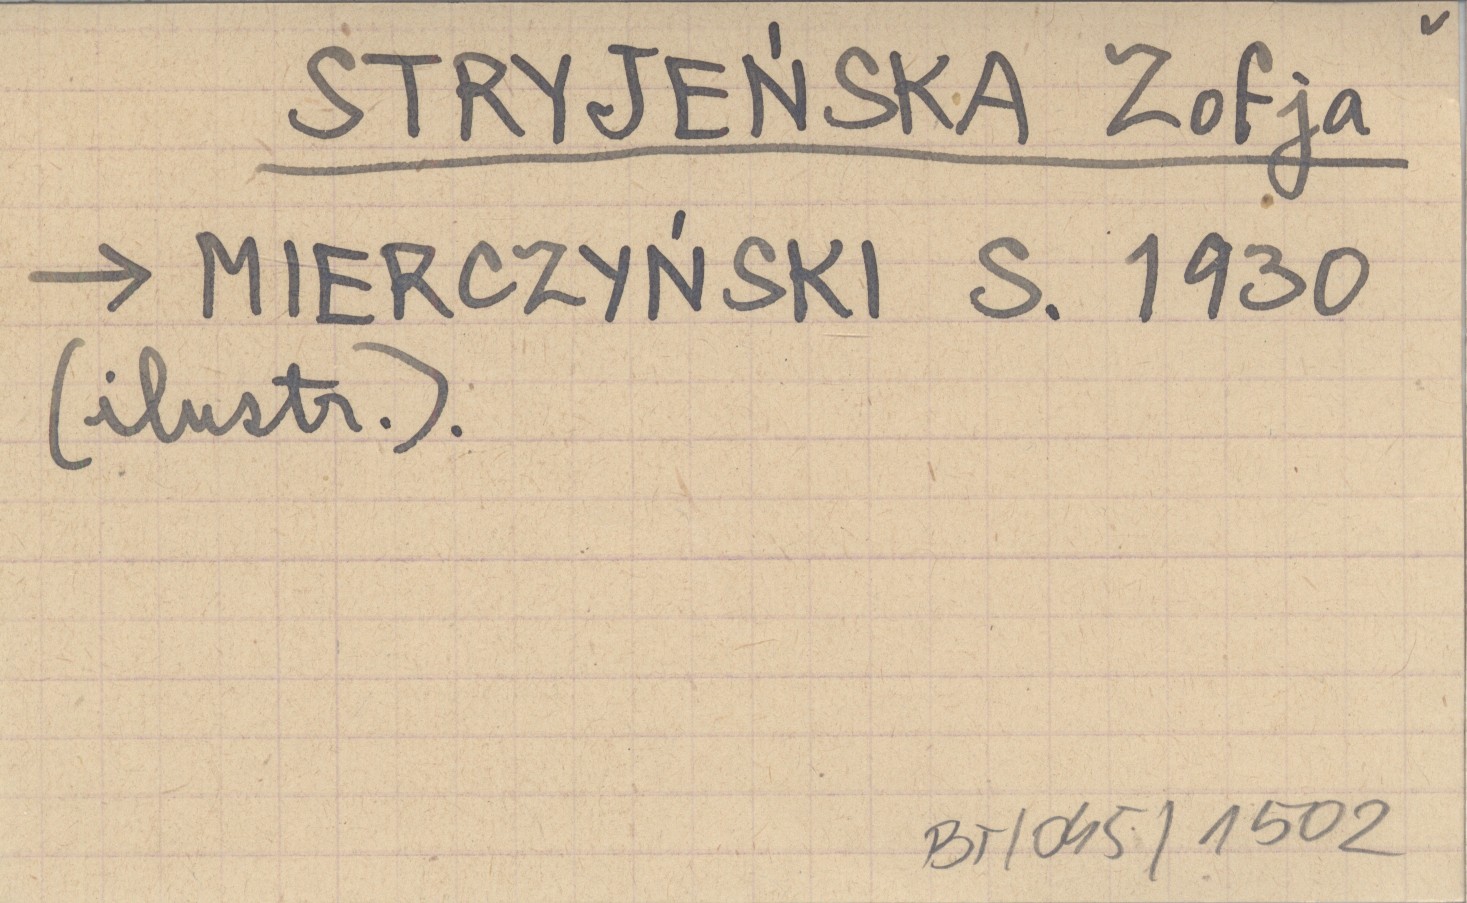 STRYJEŃSKA Zofja
→ MIERCZYŃSKI S. 1930
(ilustr.).
BT/045/1502